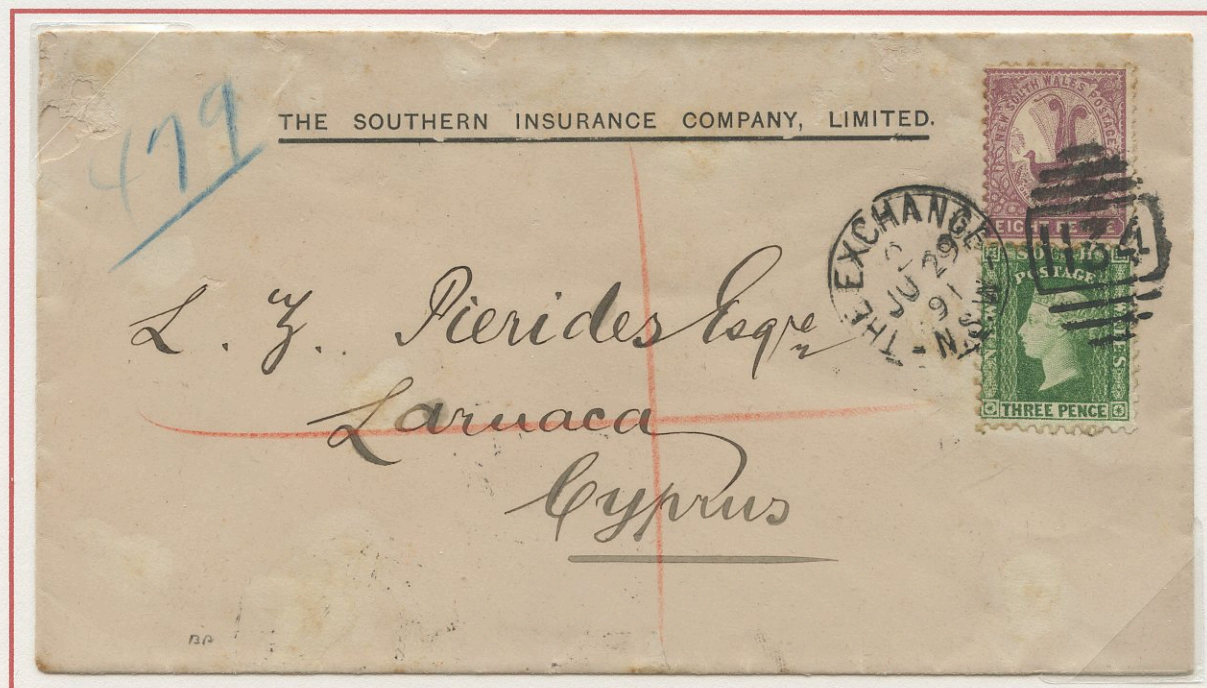 479
THE SOUTHERN INSURANCE COMPANY, LIMITED.
NEW SOUTH WALES POSTAGE
EIGHT PENCE
THE EXCHANGE
JU 29
91
N.S.W
SOUTH
POSTAGE
THREE PENCE
L. Z. Pierides Esqre
Larnaca
Cyprus
BP